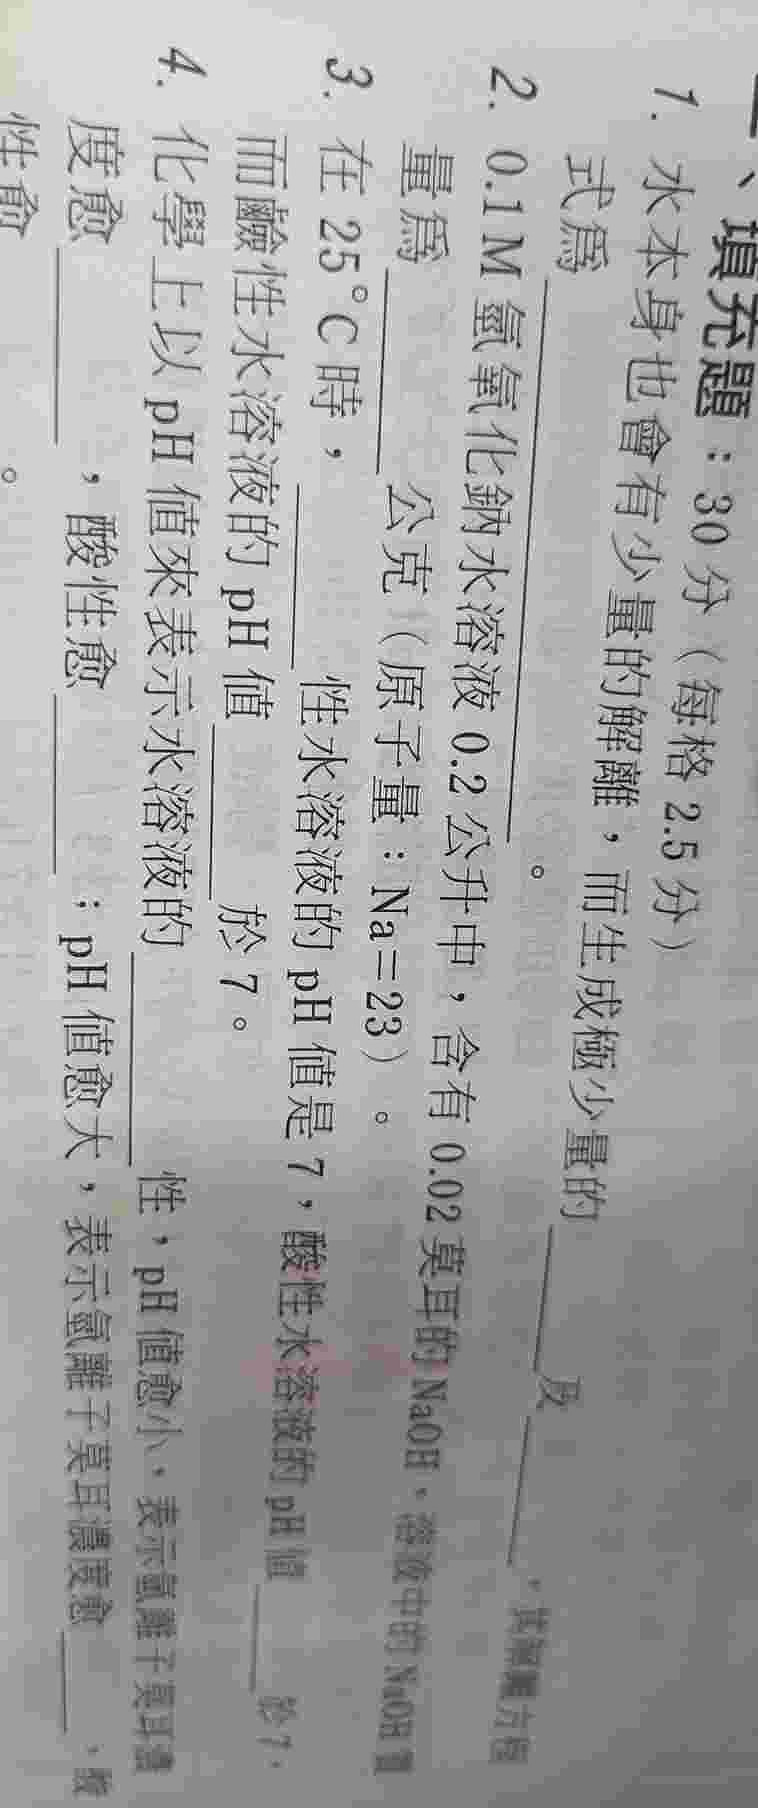 、填充題：30 分（每格 2.5 分）
1. 水本身也會有少量的解離，而生成極少量的＿＿＿及＿＿＿，其解離方程
式為＿＿＿＿＿＿＿＿＿＿。
2. 0.1 M 氫氧化鈉水溶液 0.2 公升中，含有 0.02 莫耳的 NaOH，溶液中的 NaOH 質
量為＿＿＿＿公克（原子量：Na＝23）。
3. 在 25°C 時，＿＿＿＿性水溶液的 pH 值是 7，酸性水溶液的 pH 值＿＿＿於 7，
而鹼性水溶液的 pH 值＿＿＿＿於 7。
4. 化學上以 pH 值來表示水溶液的＿＿＿＿性，pH 值愈小，表示氫離子莫耳濃
度愈＿＿＿＿，酸性愈＿＿＿＿；pH 值愈大，表示氫離子莫耳濃度愈＿＿＿，酸
性愈　　　　。